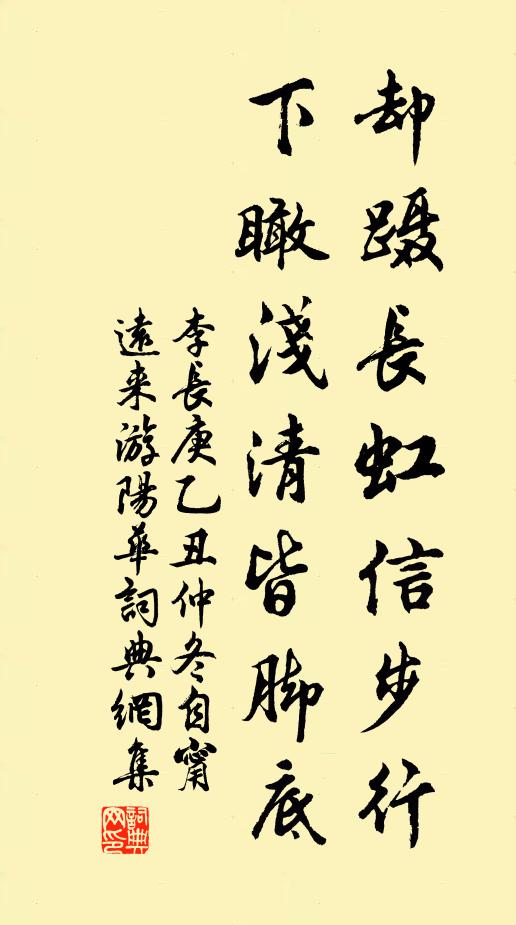 却蹑長虹信步行
下瞰淺清皆脚底
李長庚乙丑仲冬自甯
遠来游陽華詞典網集
詞典
网印